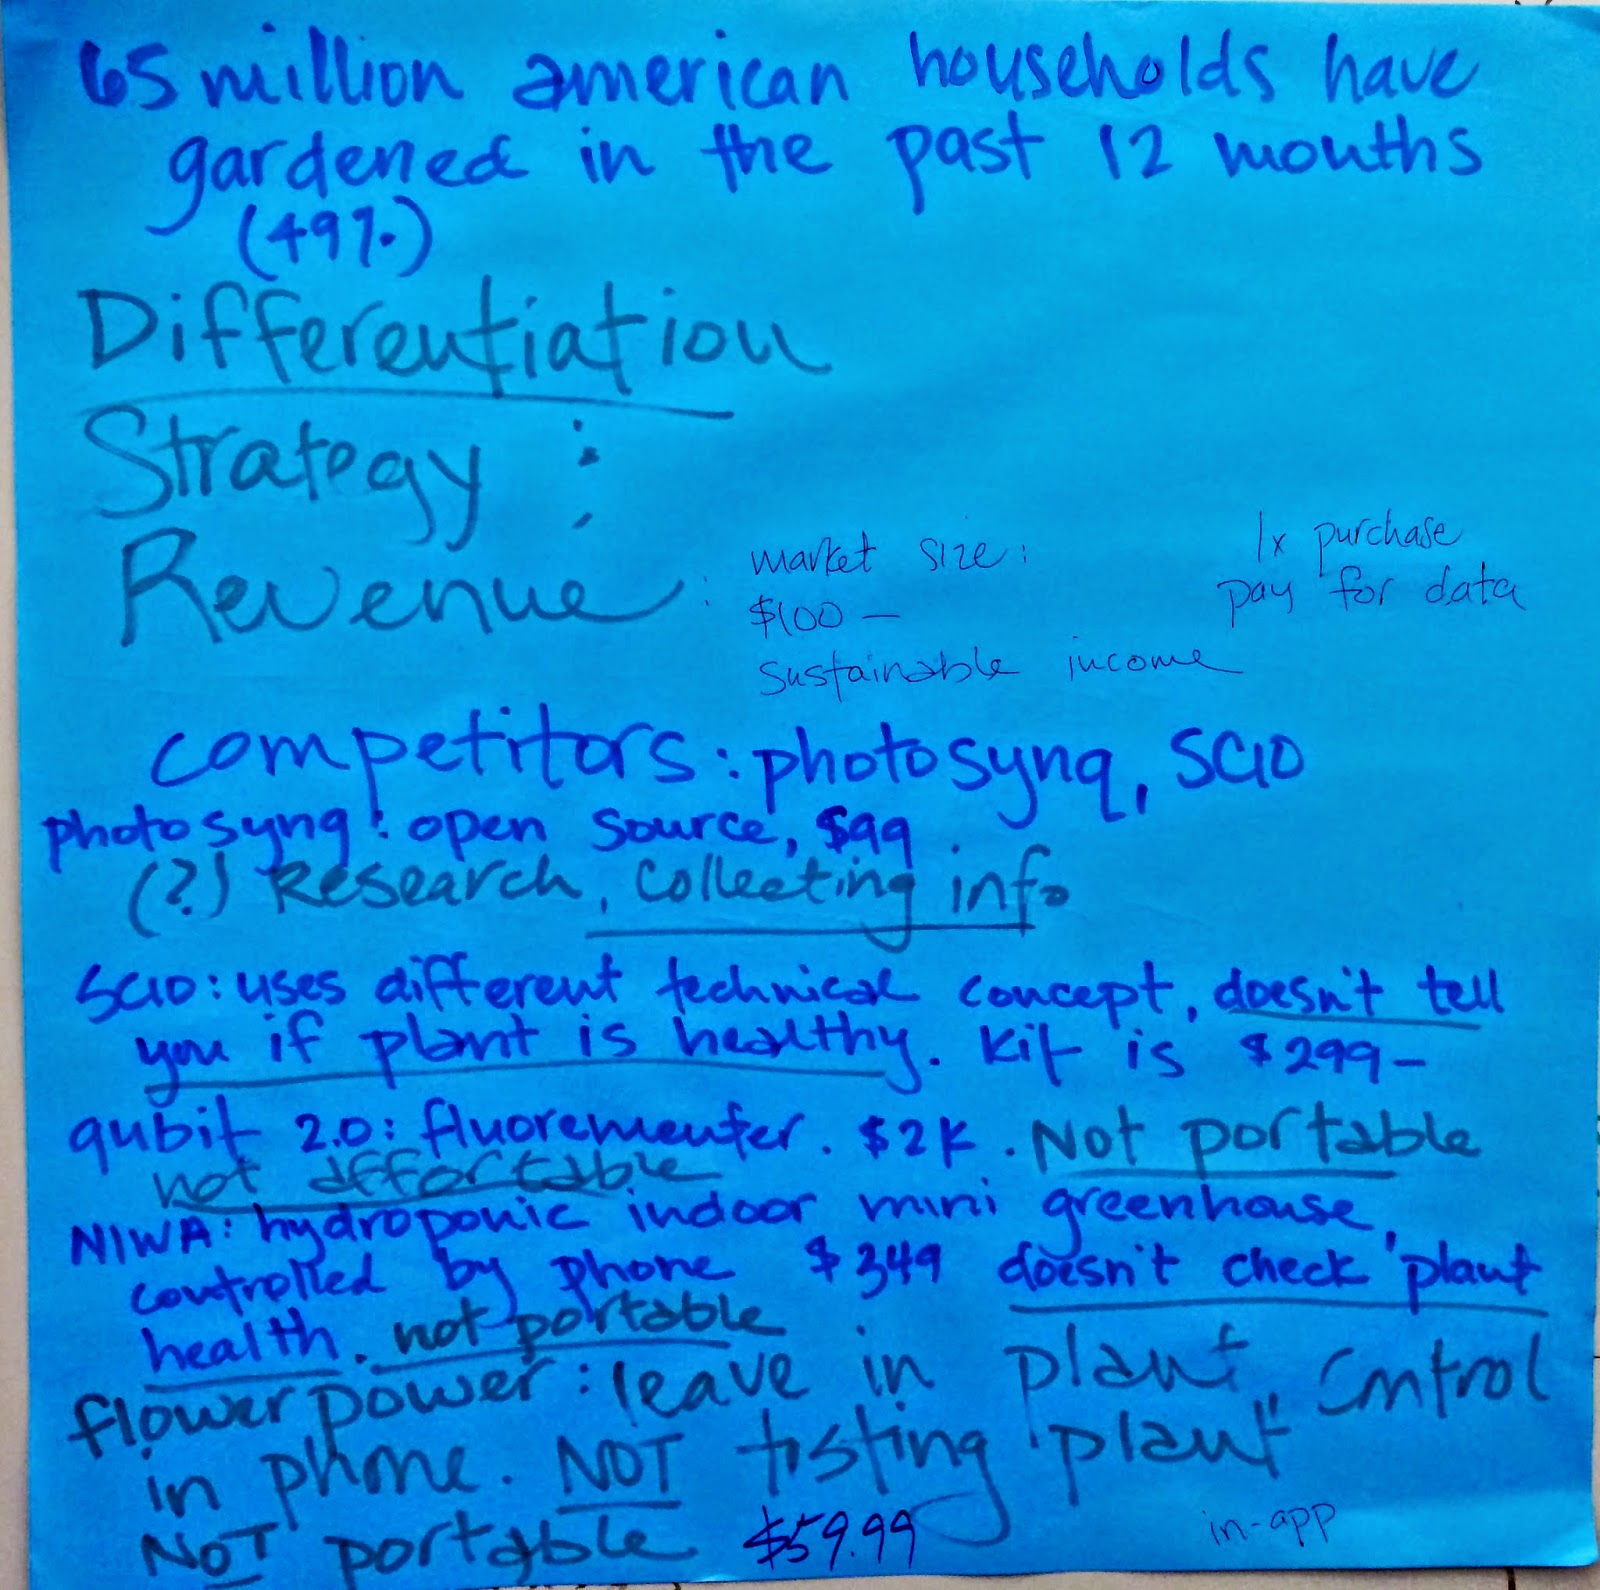 65 million american households have
gardened in the past 12 months
(49%)
Differentiation
Strategy :
Revenue :
market size:
$100 —
sustainable income
1x purchase
pay for data
competitors: photosynq, SCIO
photosynq: open source, $99
(?) Research, collecting info
SCIO: uses different technical concept, doesn't tell
you if plant is healthy. Kit is $299-
qubit 2.0: fluorementer. $2K. Not portable
not affortable
NIWA: hydroponic indoor mini greenhouse,
controlled by phone $349 doesn't check plant
health. not portable
flowerpower: leave in plant, control
in phone. NOT tisting plant
NOT portable $59.99
in-app